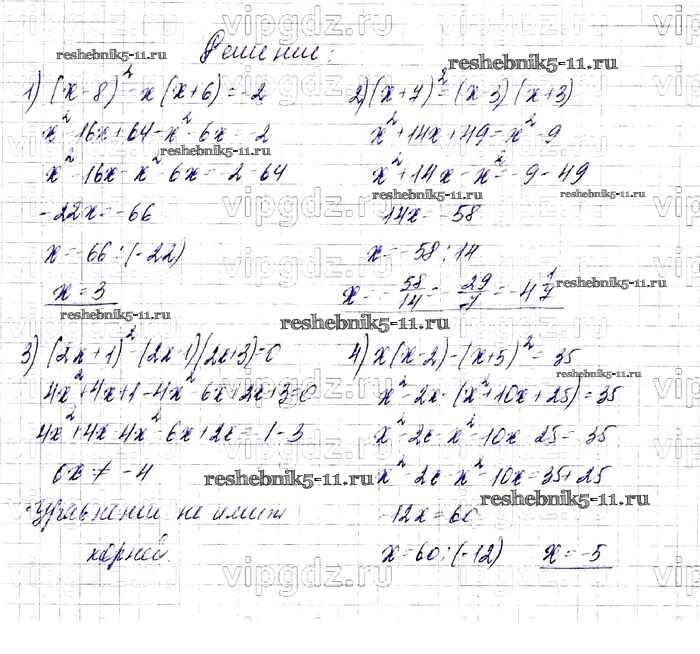 Решение:
1) (x-8)² - x(x+6) = -2
x² - 16x + 64 - x² - 6x = -2
x² - 16x - x² - 6x = -2 - 64
-22x = -66
x = -66 : (-22)
x = 3
2) (x+7)² = (x-3)(x+3)
x² + 14x + 49 = x² - 9
x² + 14x - x² = -9 - 49
14x = -58
x = -58 : 14
x = -58/14 = -29/7 = -4 1/7
3) (2x+1)² - (2x-1)(2x+3) = 0
4x² + 4x + 1 - 4x² - 6x + 2x + 3 = 0
4x² + 4x - 4x² - 6x + 2x = -1 - 3
0x ≠ -4
Уравнение не имеет
корней.
4) x(x-2) - (x+5)² = 35
x² - 2x - (x² + 10x + 25) = 35
x² - 2x - x² - 10x - 25 = 35
x² - 2x - x² - 10x = 35 + 25
-12x = 60
x = 60 : (-12) x = -5
vipgdz.ru
reshebnik5-11.ru